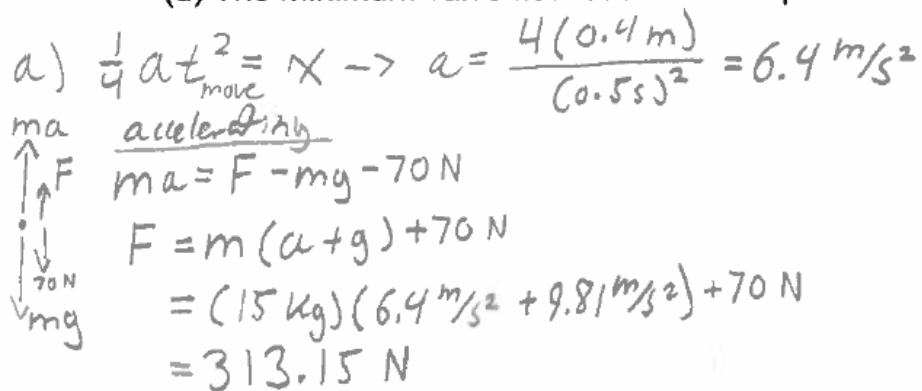 a) 1/4 at²move = x -> a = 4(0.4m)/(0.5s)² = 6.4 m/s²
ma accelerating
F ma = F - mg - 70 N
F = m(a+g) + 70 N
70 N
= (15 kg)(6.4 m/s² + 9.81 m/s²) + 70 N
mg
= 313.15 N